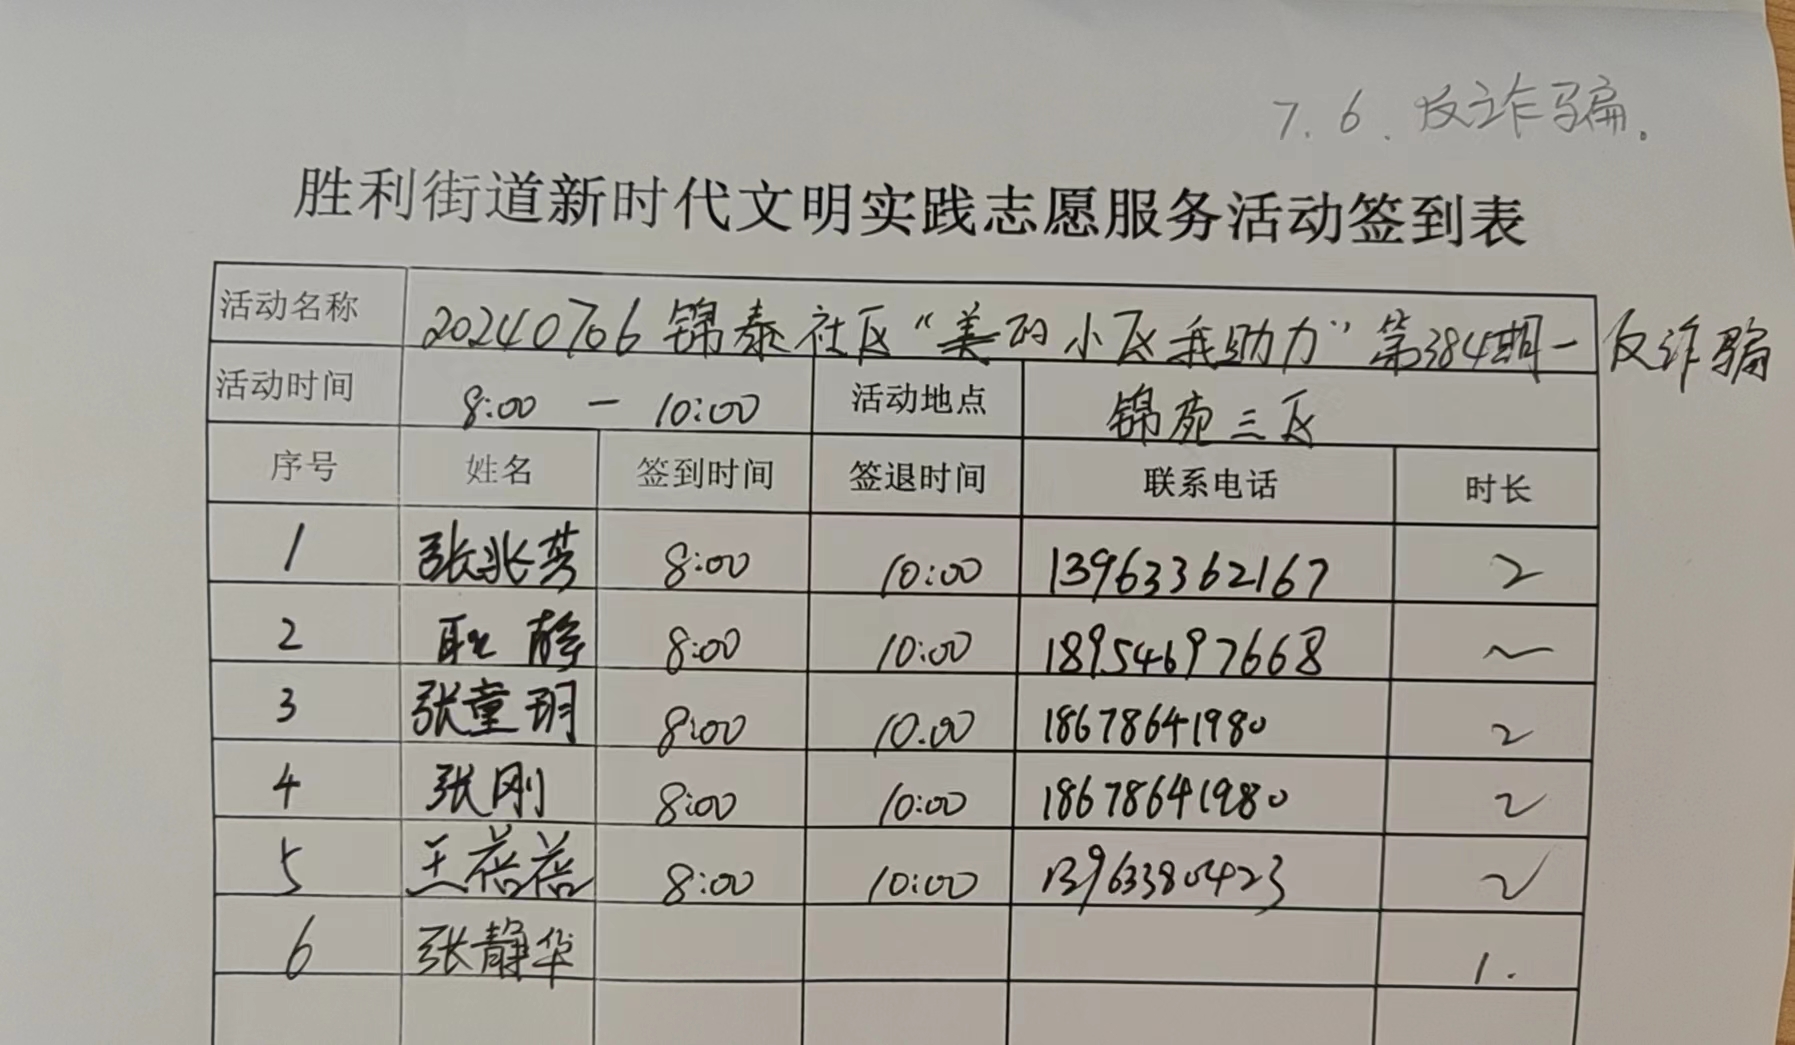 7.6.反诈骗.
胜利街道新时代文明实践志愿服务活动签到表
活动名称 20240706锦泰社区“美的小区我助力”第384期一反诈骗
活动时间 8:00 — 10:00 活动地点 锦苑三区
序号 姓名 签到时间 签退时间 联系电话 时长
1 张兆芳 8:00 10:00 13963362167 2
2 耿静 8:00 10:00 18954697668 2
3 张童玥 8:00 10.00 18678641980 2
4 张刚 8:00 10:00 18678641980 2
5 王蓓蓓 8:00 10:00 13963380423 2
6 张静华 1.